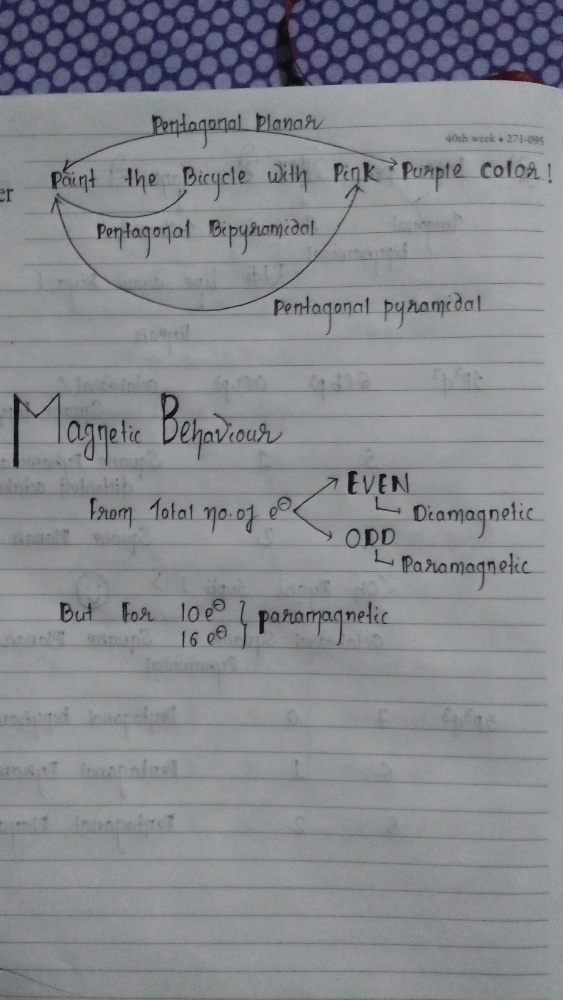 Pentagonal Planar
40th week • 271-095
er
Paint the Bicycle with Pink Purple color!
Pentagonal Bipyramidal
Pentagonal pyramidal
Magnetic Behaviour
From Total no. of e⊖
EVEN
Diamagnetic
ODD
Paramagnetic
But For 10 e⊖ } paramagnetic
16 e⊖